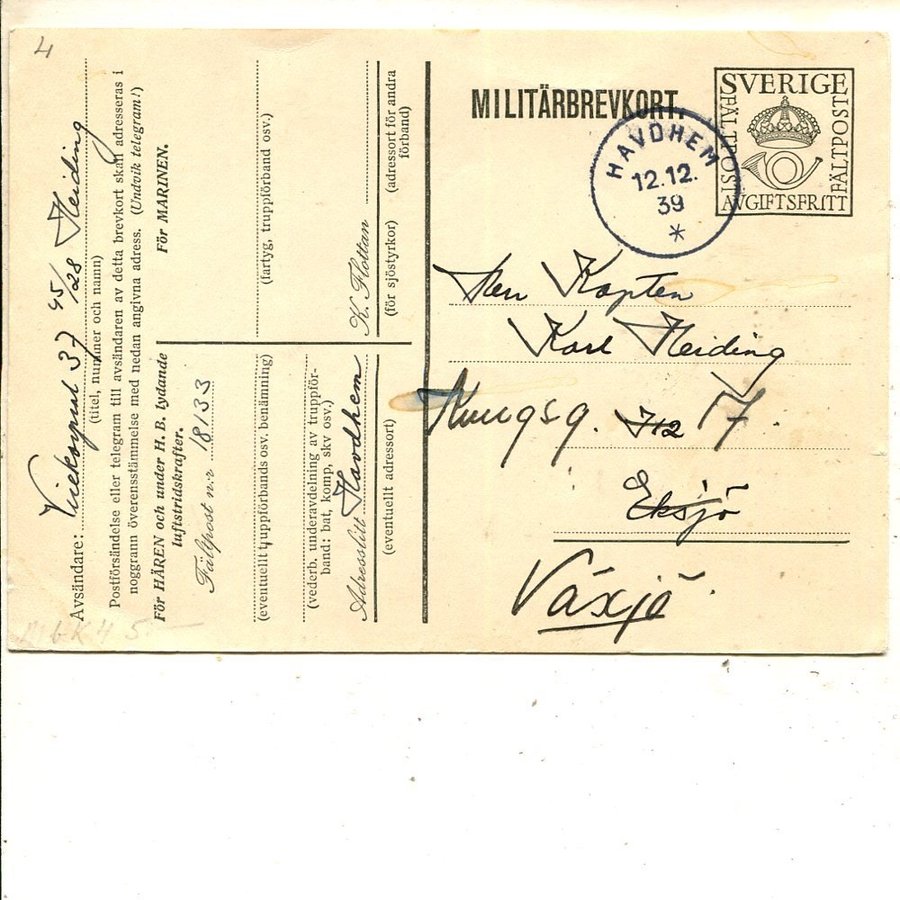 4
Avsändare: Vicekorpral 37 45/28 Heiding
(titel, nummer och namn)
Postförsändelse eller telegram till avsändaren av detta brevkort skall adresseras i
noggrann överensstämmelse med nedan angivna adress. (Undvik telegram!)
För HÄREN och under H. B. lydande
luftstridskrafter.
Fältpost n:r 18133
(eventuellt truppförbands osv. benämning)
(vederb. underavdelning av truppför-
band: bat, komp, skv osv.)
Adresslitt Havdhem
(eventuellt adressort)
För MARINEN.
(fartyg, truppförband osv.)
K. Flottan
(för sjöstyrkor) (adressort för andra
förband)
MILITÄRBREVKORT.
SVERIGE
FÄLTPOST
FÄLTPOST
AVGIFTSFRITT
HAVDHEM
12.12.
39
*
Herr Kapten
Karl Heiding
Kungsg. I 12 17.
Eksjö
Växjö